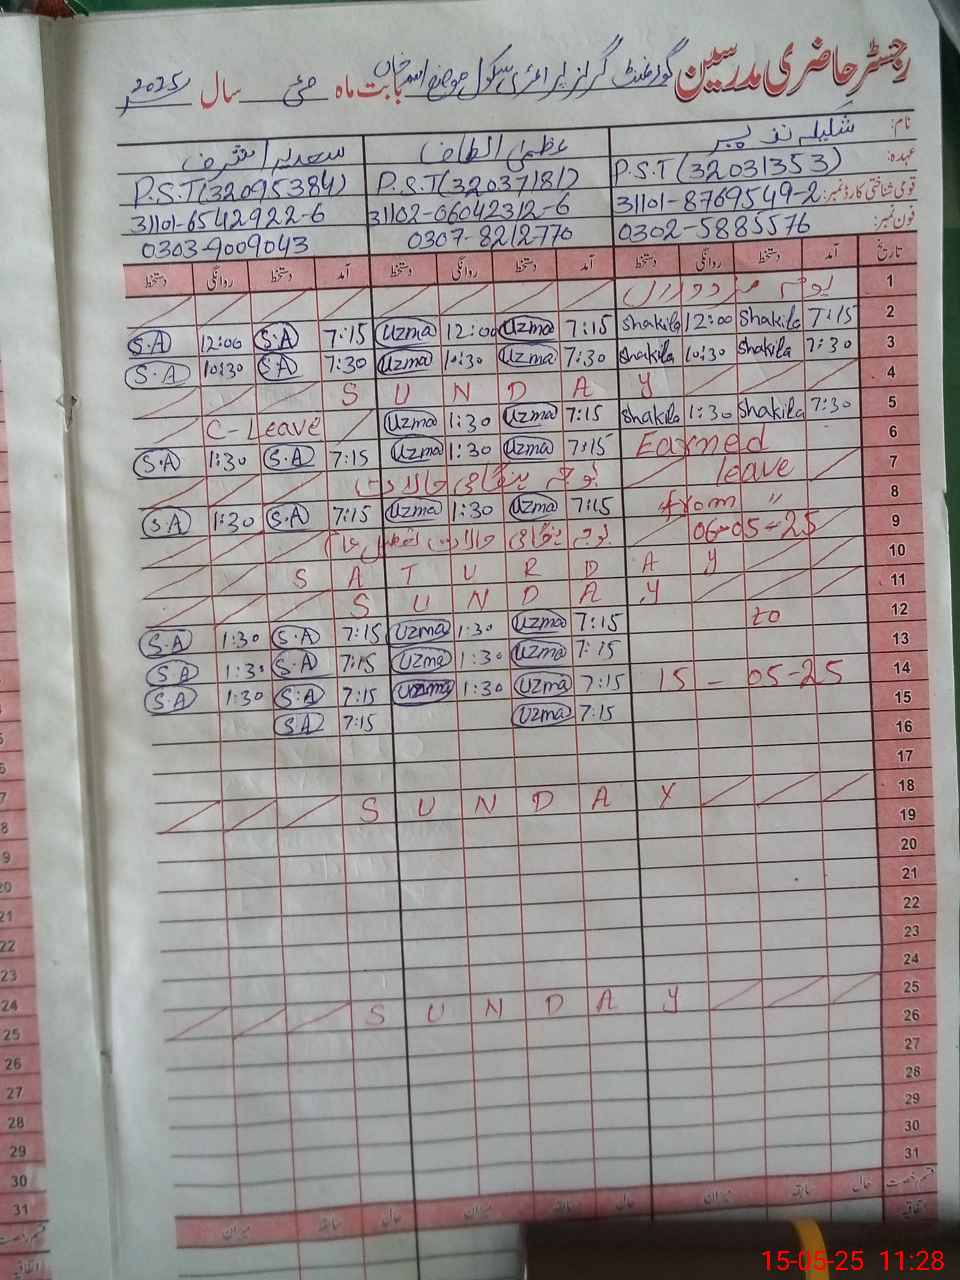 رجسٹر حاضری مدرسین گورنمنٹ گرلز پرائمری سکول موضع بابت ماہ مئی سال 2025
نام: شکیلہ عظمیٰ الطاف سعدیہ اشرف
عہدہ: P.S.T (32031353) P.S.T (32037181) P.S.T (32095384)
قومی شناختی کارڈ نمبر: 31101-8769549-2 31102-06042312-6 31101-6542922-6
فون نمبر: 0302-5885576 0307-8212770 0303-9009043
تاریخ آمد دستخط روانگی دستخط آمد دستخط روانگی دستخط آمد دستخط روانگی دستخط
1 یوم
2 7:15 Shakila 12:00 Shakila 7:15 Uzma 12:00 Uzma 7:15 S.A 12:00 S.A
3 7:30 Shakila 10:30 Shakila 7:30 Uzma 10:30 Uzma 7:30 S.A 10:30 S.A
4 S U N D A Y
5 7:30 Shakila 1:30 Shakila 7:15 Uzma 1:30 Uzma C-Leave
6 Earned 7:15 Uzma 1:30 Uzma 7:15 S.A 1:30 S.A
7 leave
8 from " 7:15 Uzma 1:30 Uzma 7:15 S.A 1:30 S.A
9 06-05-25
10 S A T U R D A Y
11 S U N D A Y
12 to 7:15 Uzma 1:30 Uzma 7:15 S.A 1:30 S.A
13 7:15 Uzma 1:30 Uzma 7:15 S.A 1:30 S.A
14 15 - 05-25 7:15 Uzma 1:30 Uzma 7:15 S.A 1:30 S.A
15 7:15 Uzma 7:15 S.A
16
17
18 S U N D A Y
19
20
21
22
23
24
25 S U N D A Y
26
27
28
29
30
31
قسم رخصت حال سابقہ میزان حال سابقہ میزان حال سابقہ میزان
اتفاقیہ
15-05-25 11:28